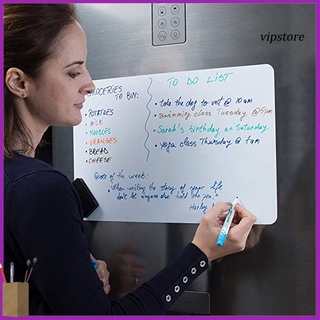 vipstore
GROCERIES TO BUY:
• POTATOES
• MILK
• NOODLES
• ORANGES
• BREAD
• CHEESE
TO DO LIST
• take the dog to vet @ 10am
• swimming class Tuesday @ 5pm
• Sarah's birthday on Saturday
• yoga class Thursday @ 7am
Quote of the week:
"When writing the story of your life
don't let anyone else hold the pen."
Harley